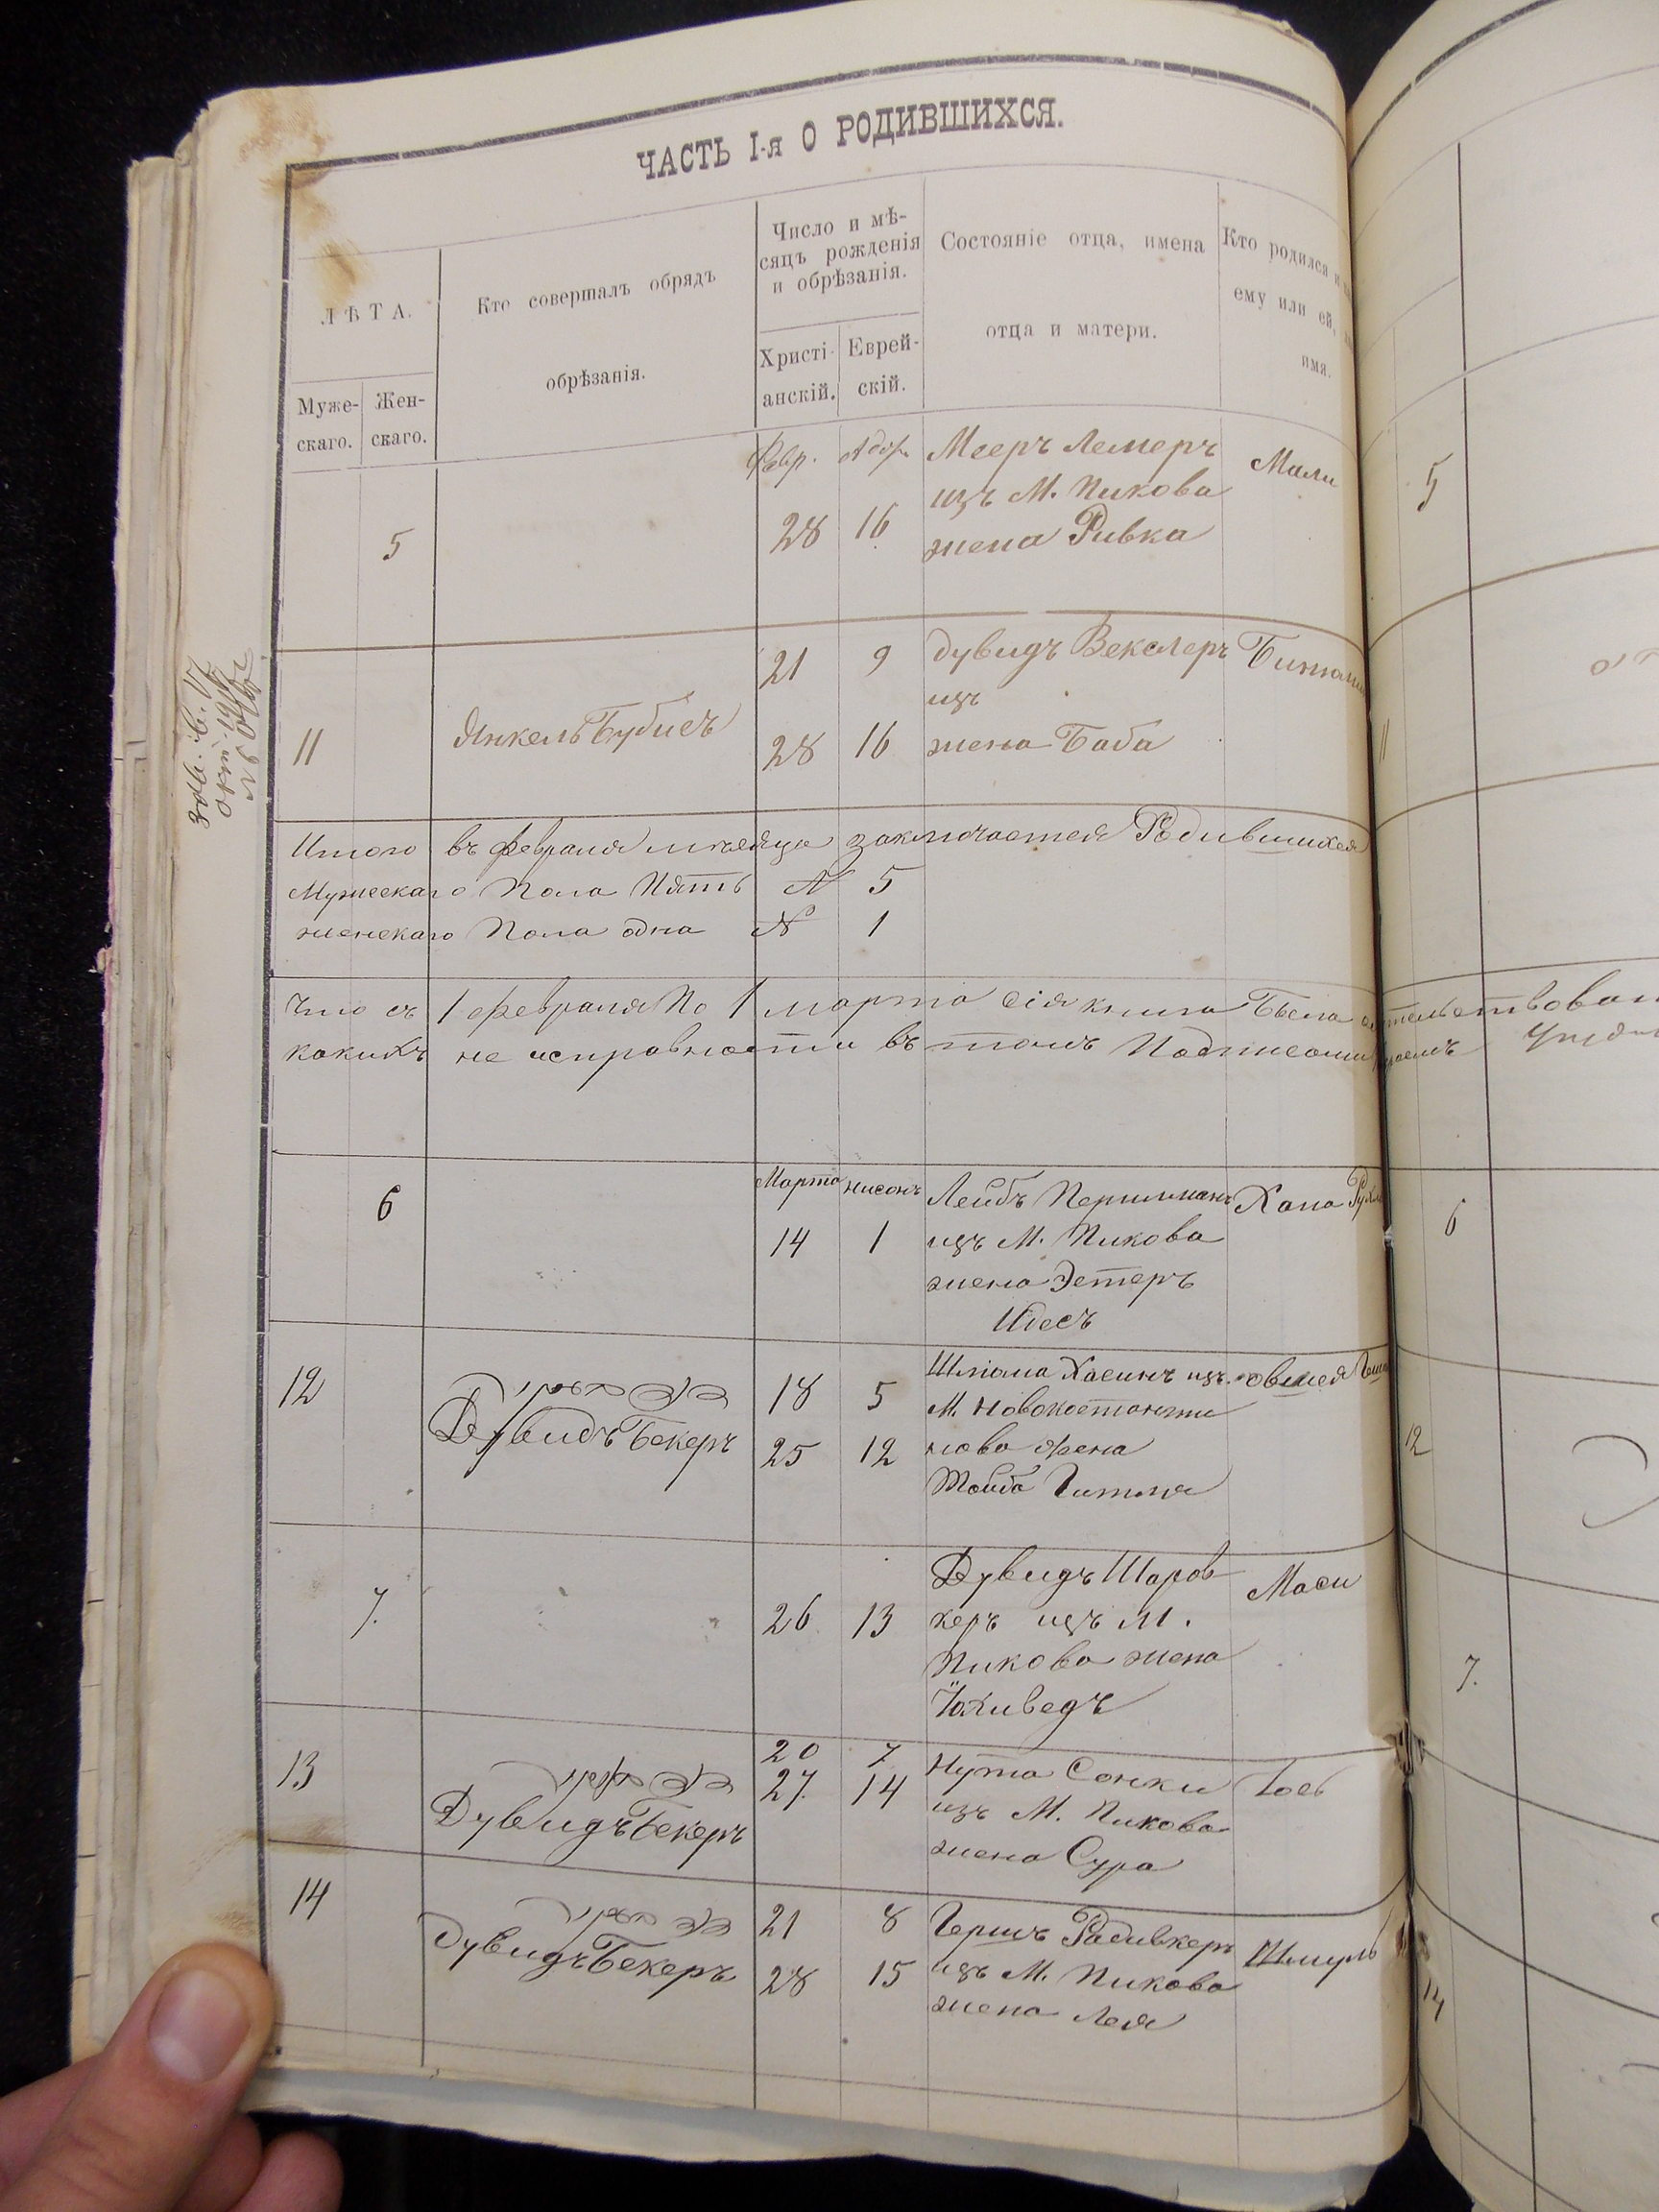 ЧАСТЬ I-я О РОДИВШИХСЯ.
ЛѢТА.
Муже-
скаго.
Жен-
скаго.
Кто совершалъ обрядъ
обрѣзанія.
Число и мѣ-
сяцъ рожденія
и обрѣзанія.
Христі-
анскій.
Еврей-
скій.
Состояніе отца, имена
отца и матери.
Кто родился и
ему или ей,
имя.
5
Февр. Адор.
28 16
Мееръ Лемеръ
изъ М. Пикова
жена Ривка
Мали
5
11
Янкель Бубисъ
21 9
28 16
Дувидъ Векслеръ
изъ
жена Баба
11
Итого въ февраля мѣсяца заключается Родившихся
Мужескаго Пола Пять № 5
женскаго Пола одна № 1
Что съ 1 февраля По 1 марта сія книга Была
какихъ не исправности въ томъ
6
Марта нисонъ
14 1
Лейбъ Перильманъ
изъ М. Пикова
жена Эстеръ
Идесъ
Хана
6
12
Дувидъ Бекеръ
18 5
25 12
Шліома Хасинъ изъ
М. Новоконстанти
нова жена
Тойба Гитля
12
7.
26 13
Дувидъ Шаров
керъ изъ М.
Пикова жена
Йохиведъ
Маси
7.
13
Дувидъ Бекеръ
20 7
27. 14
Нута Сонки
изъ М. Пикова
жена Сура
Іось
14
Дувидъ Бекеръ
21 8
28 15
Гершъ Радивкеръ
изъ М. Пикова
жена Лея
Шмуль
14